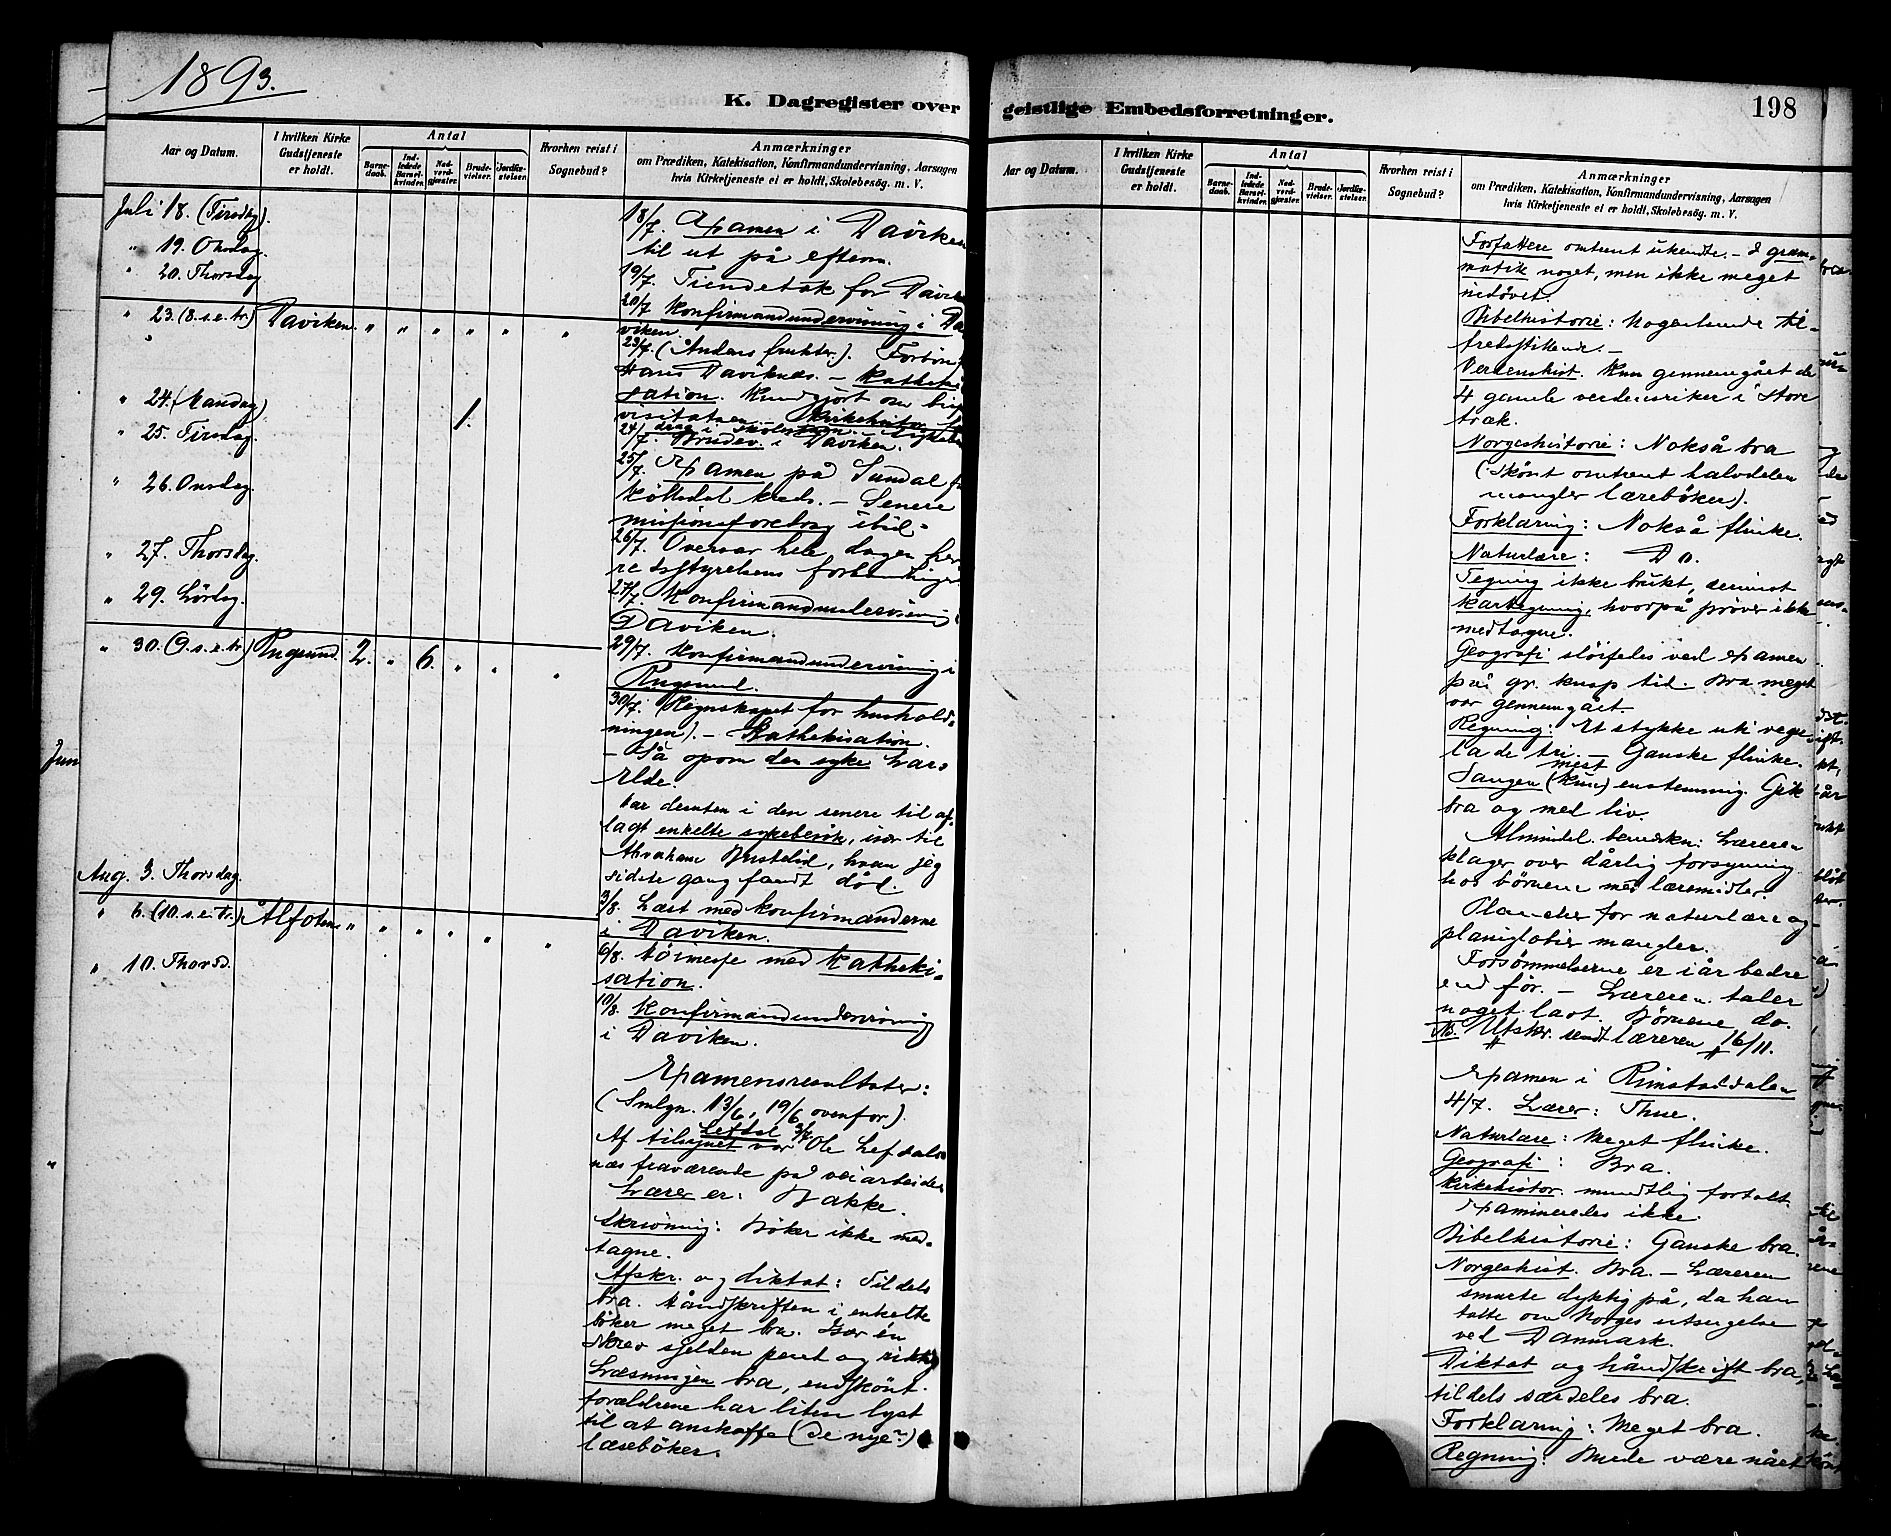 1893.
K. Dagregister over geistlige Embedsforretninger.
198
Aar og Datum.
I hvilken Kirke Gudstjeneste er holdt.
Antal
Barnedaab.
Indledede Barselkvinder.
Nadverdgjæster.
Brudevielser.
Jordfæstelser.
Hvorhen reist i Sognebud?
Anmærkninger
om Prædiken, Katekisation, Konfirmandundervisning, Aarsagen
hvis Kirketjeneste ei er holdt, Skolebesøg. m. V.
Juli 18. (Tirsdag).
" 19. Onsdag.
" 20. Thorsdag
" 23. (8. s. e. tr.) Daviken. " " " " " "
" 24. (Mandag) 1.
" 25. Tirsdag.
" 26. Onsdag.
" 27. Thorsdag.
" 29. Lördag.
" 30. (9. s. e. tr.) Rugsund. 2. " 6. " " "
Aug. 3. Thorsdag.
" 6. (10. s. e. tr.) Ålfoten " " " " " "
" 10. Thorsd.
18/7. Examen i Daviken
til ut på efterm.
19/7. Tiendetak for Davik
20/7 Konfirmandundervisning i Da
viken.
23/7. (Åndens frukter). Forbön
Hans Daviknes. – Katheki
sation. Kundgjort om bisp
visitatsen.
24/7. Brudev. i Daviken.
25/7. Examen på Sundal f
kreds. – Senere
missionsforedrag ibid.
26/7. Overvar hele dagen her
redsstyrelsens forhandlinger
27/7. Konfirmandundervisning i
Daviken.
29/7. Konfirmandundervisning i
Rugsund.
30/7. (Regnskapet for hushold-
ningen). – Kathekisation.
– Så opom den syke Lars
Elde.
har desuten i den senere tid af-
lagt enkelte sykebesök, især til
Abraham, hvem jeg
sidste gang fandt död.
3/8. Læst med konfirmanderne
i Daviken.
6/8. Höimesse med Katheki-
sation.
10/8. Konfirmandundervisning
i Daviken.
Examensresultater:
(Smlgn. 13/6, 19/6 ovenfor).
Lefdal 3/7
Af tilsynet var Ole Lefdals-
næs fraværende på veiarbeide.
Lærer er: Bakke.
Skrivning: Böker ikke med-
tagne.
Afskr. og diktat: Tildels
bra. Håndskriften i enkelte
böker meget bra. Især én
skrev sjelden pent og riktig
Læsningen bra, endskönt
forældrene har liten lyst
til at anskaffe (de nye?)
læsebøker.
Aar og Datum.
I hvilken Kirke Gudstjeneste er holdt.
Antal
Barnedaab.
Indledede Barselkvinder.
Nadverdgjæster.
Brudevielser.
Jordfæstelser.
Hvorhen reist i Sognebud?
Anmærkninger
om Prædiken, Katekisation, Konfirmandundervisning, Aarsagen
hvis Kirketjeneste ei er holdt, Skolebesøg. m. V.
Forfattere omtrent ukendte. – I gram-
matik noget, men ikke meget
inöövet.
Bibelhistorie: Nogenlunde til-
fredsstillende. –
Verdenshist. Kun gennemgået de
4 gamle verdensriker i store
træk.
Norgeshistorie: Nokså bra
(skönt omtrent halvdelen
mangler lærebøker).
Forklaring: Nokså flinke.
Naturlære: Do.
Tegning ikke brukt, derimot
kartegning, hvorpå pröver ikke
medtagne.
Geografi slöifedes ved examen
på gr. knap tid. Bra meget
var gennemgået.
Regning: Et stykke uti regu
la de tri. – Ganske flinke.
mest
Sangen (kun) enstemmig. Gik
bra og med liv.
Almindel. bemerkn: Læreren
klager over dårlig forsyning
hos börnene med læremidler.
Plancher for naturlære og
planiglobier mangler.
Forsömmelserne er i år bedre
end för. – Læreren taler
noget lavt. Börnene do.
NB. Utskr. sendt læreren 16/11.
Examen i Rimstaddalen
4/7. Lærer: Thue.
Naturlære: Meget flinke.
Geografi: Bra.
Kirkehistor. mundtlig fortalt.
Examineredes ikke.
Bibelhistorie: Ganske bra.
Norgeshist. Bra. – Læreren
smurte dyktig på, da han
talte om Norges utsugelse
ved Danmark.
Diktat og håndskrift bra,
tildels særdeles bra.
Forklaring: Meget bra.
Regning: Burde være nået